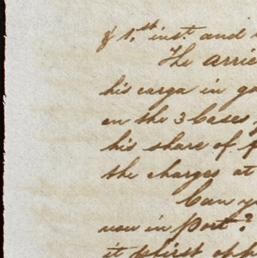 & 1.st inst. and
The arrie
his carga in go
on the 3 bases
his share of f
the charges at
Can y
now in port?
it first opp